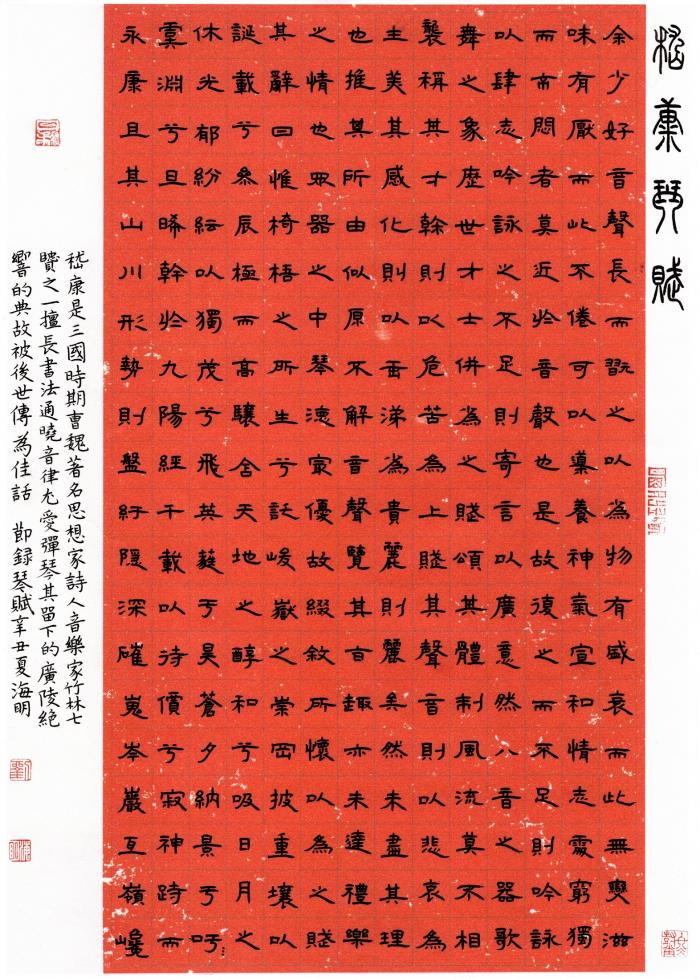 嵇康琴賦
余少好音聲長而翫之以為物有盛衰而此無變滋
味有厭而此不倦可以導養神氣宣和情志處窮獨
而不悶者莫近於音聲也是故復之而不足則吟詠
以肆志吟詠之不足則寄言以廣意然八音之器歌
舞之象歷世才士併為之賦頌其體制風流莫不相
襲稱其才幹則以危苦為上賦其聲音則以悲哀為
主美其感化則以垂涕為貴麗則麗矣然未盡其理
也推其所由似原不解音聲覽其旨趣亦未達禮樂
之情也眾器之中琴德最優故綴敘所懷以為之賦
其辭曰惟椅梧之所生兮託峻嶽之崇岡披重壤以
誕載兮參辰極而高驤含天地之醇和兮吸日月之
休光郁紛紜以獨茂兮飛英蕤于昊蒼夕納景于吁
虞淵兮旦晞幹於九陽經千載以待價兮寂神跱而
永康且其山川形勢則盤紆隱深磪嵬岑巖亙嶺巉
嵇康是三國時期曹魏著名思想家詩人音樂家竹林七
賢之一擅長書法通曉音律尤愛彈琴其留下的廣陵絕
響的典故被後世傳為佳話 節録琴賦辛丑夏海明